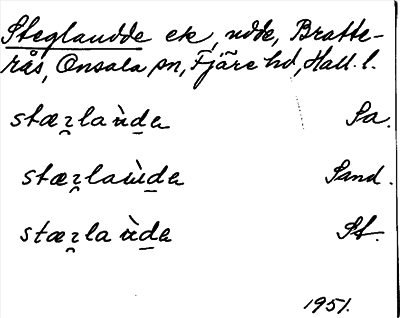 Steglaudde ek, udde, Bratte-
rås, Onsala sn, Fjäre hd, Hall. l.
stæɀlaùda Sa.
stæɀlaùda Sand.
stæɀlaùda St.
1951.